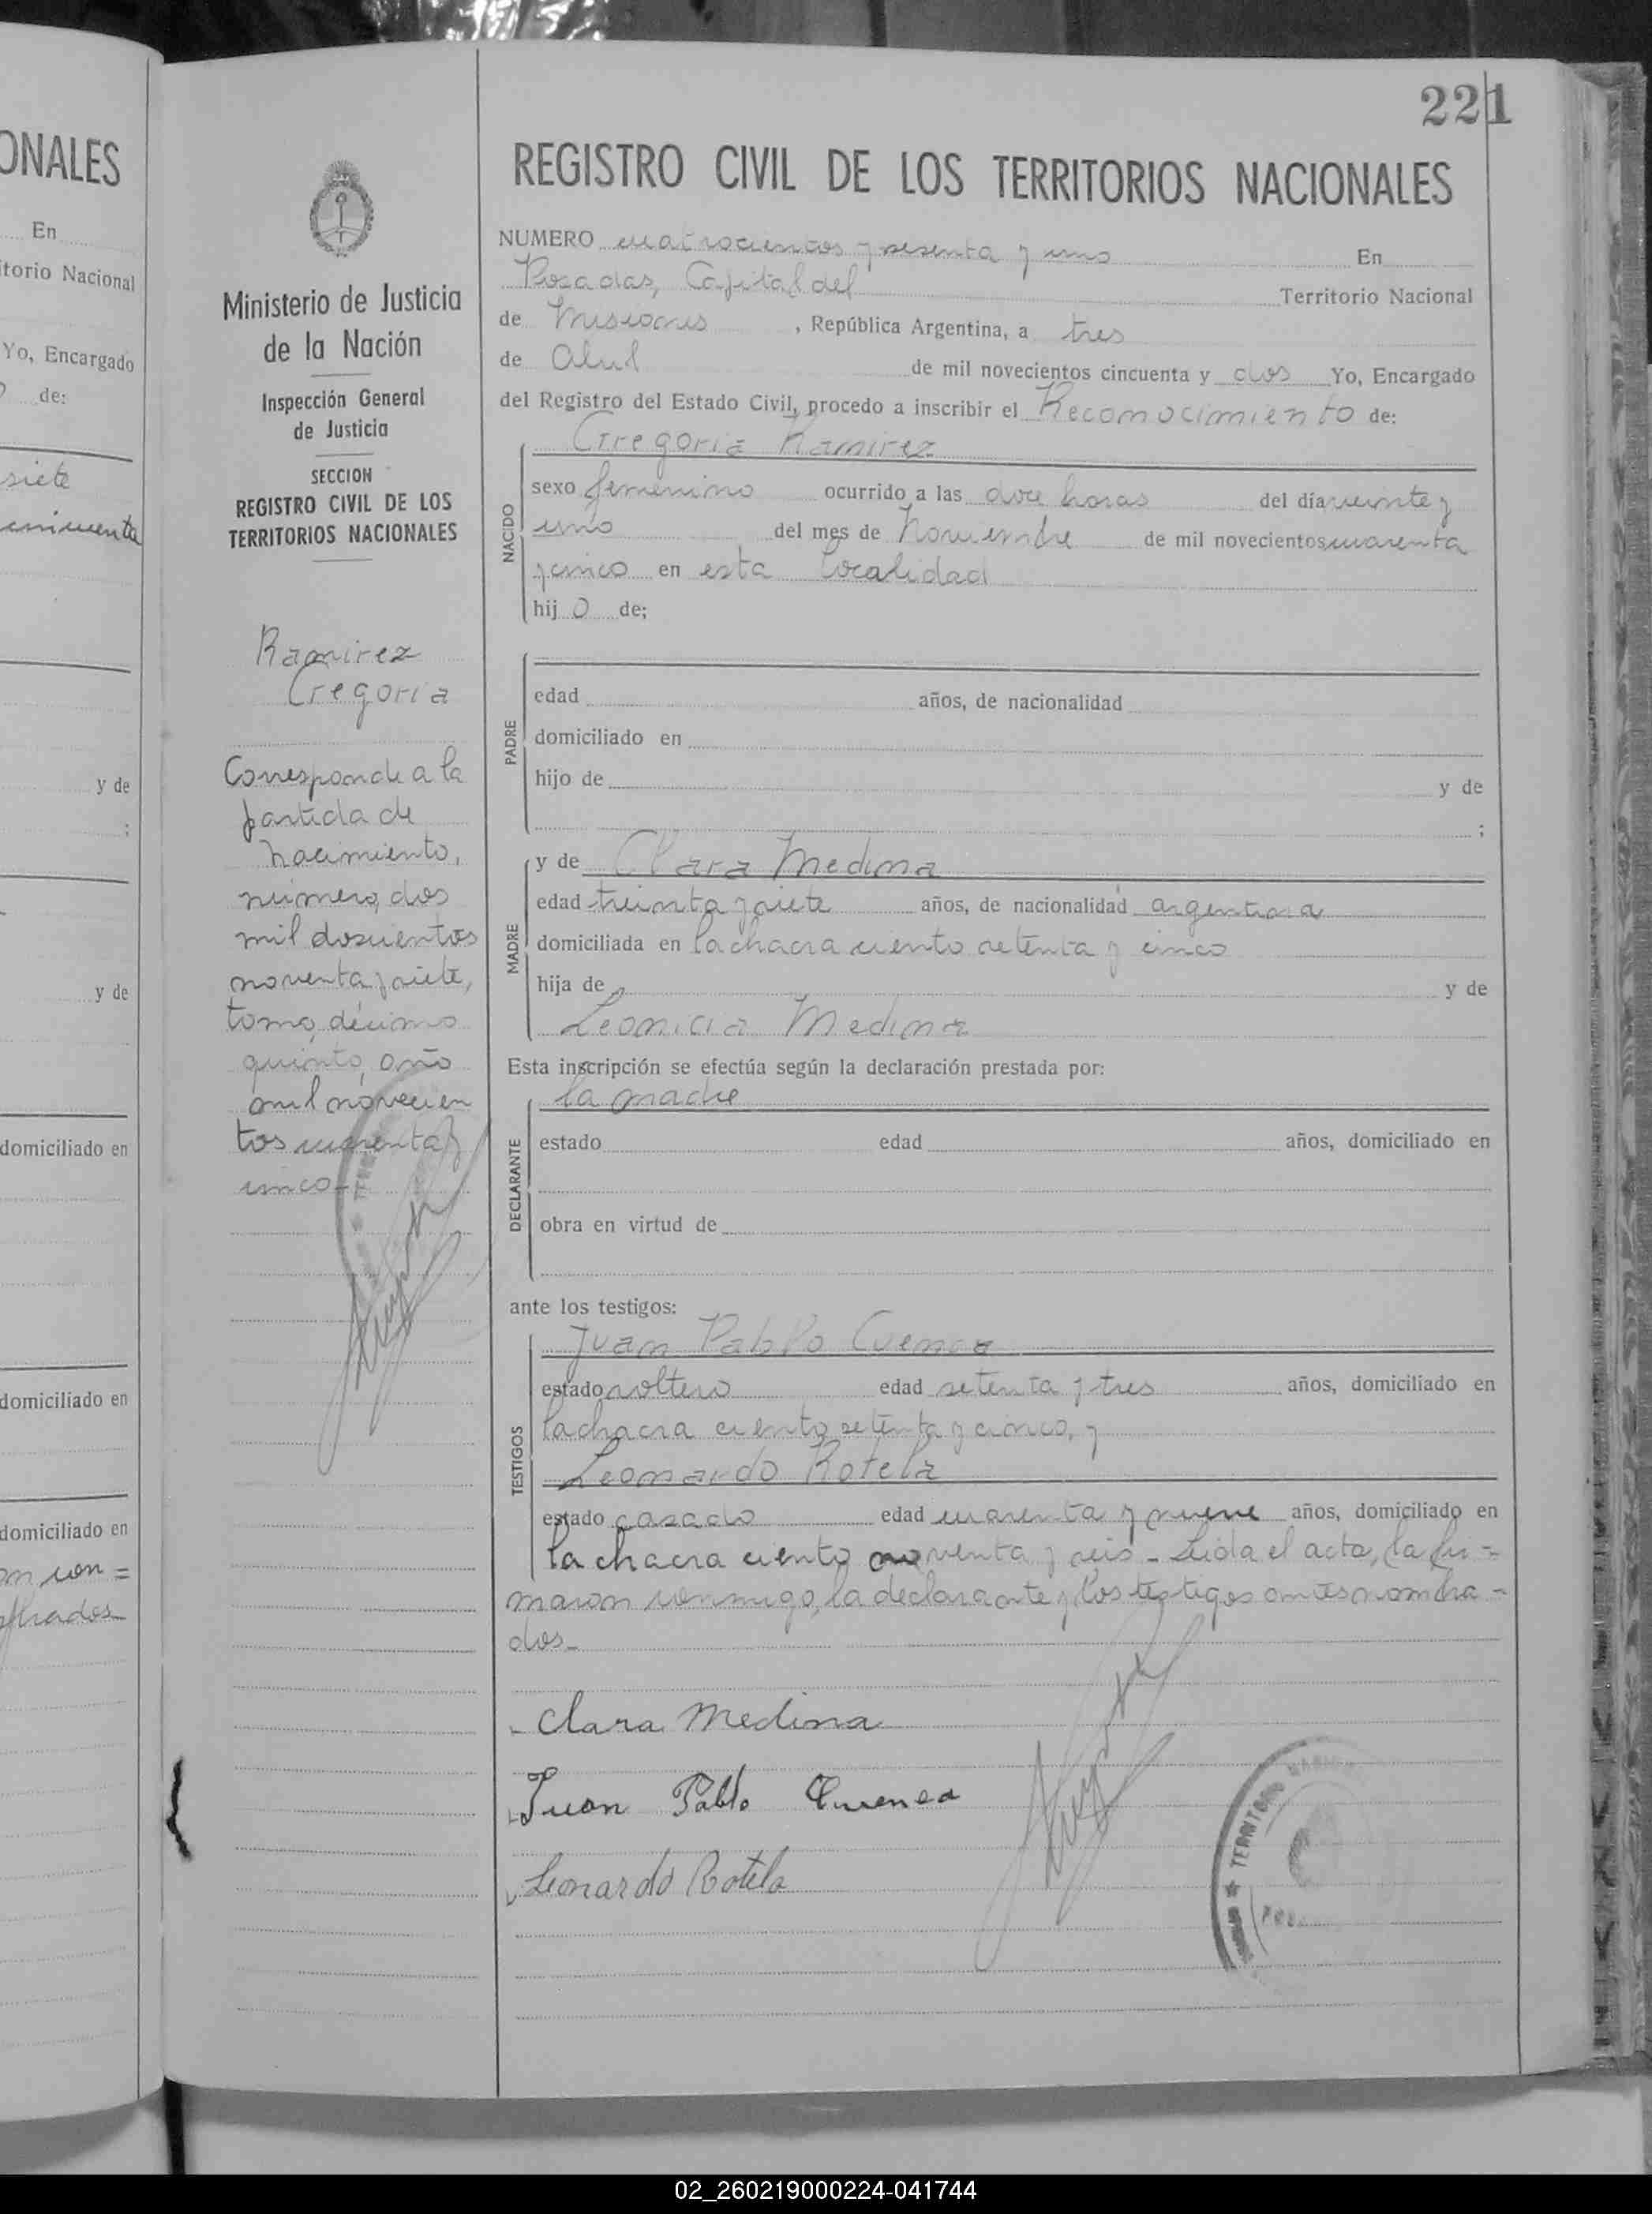 ONALES
En
itorio Nacional
Yo, Encargado
de:
siete
cincuenta
y de
;
y de
domiciliado en
domiciliado en
domiciliado en
on con =
brados
221
Ministerio de Justicia
de la Nación
Inspección General
de Justicia
SECCION
REGISTRO CIVIL DE LOS
TERRITORIOS NACIONALES
Ramirez
Gregoria
Corresponde a la
partida de
nacimiento,
número, dos
mil doscientos
noventa y siete,
tomo, décimo
quinto, año
mil novecien
tos cuarenta y
cinco-
REGISTRO CIVIL DE LOS TERRITORIOS NACIONALES
NUMERO cuatrocientos y sesenta y uno En
Posadas, Capital del Territorio Nacional
de Misiones , República Argentina, a tres
de Abril de mil novecientos cincuenta y dos Yo, Encargado
del Registro del Estado Civil, procedo a inscribir el Reconocimiento de:
Gregoria Ramirez
NACIDO
sexo femenino ocurrido a las doce horas del día veinte y
uno del mes de Noviembre de mil novecientos cuarenta
y cinco en esta localidad
hij o de;
PADRE
edad años, de nacionalidad
domiciliado en
hijo de y de
;
MADRE
y de Clara Medina
edad treinta y siete años, de nacionalidad argentina
domiciliada en la chacra ciento setenta y cinco
hija de y de
Leonicia Medina
Esta inscripción se efectúa según la declaración prestada por:
DECLARANTE
la madre
estado edad años, domiciliado en
obra en virtud de
ante los testigos:
TESTIGOS
Juan Pablo Cuenca
estado soltero edad setenta y tres años, domiciliado en
la chacra ciento setenta y cinco, y
Leonardo Rotela
estado casado edad cuarenta y nueve años, domiciliado en
la chacra ciento noventa y seis - Leída el acta, la fir =
maron conmigo, la declarante y los testigos antes nombra =
dos-
Clara Medina
Juan Pablo Cuenca
Leonardo Rotela
TERRITORIO
02_260219000224-041744